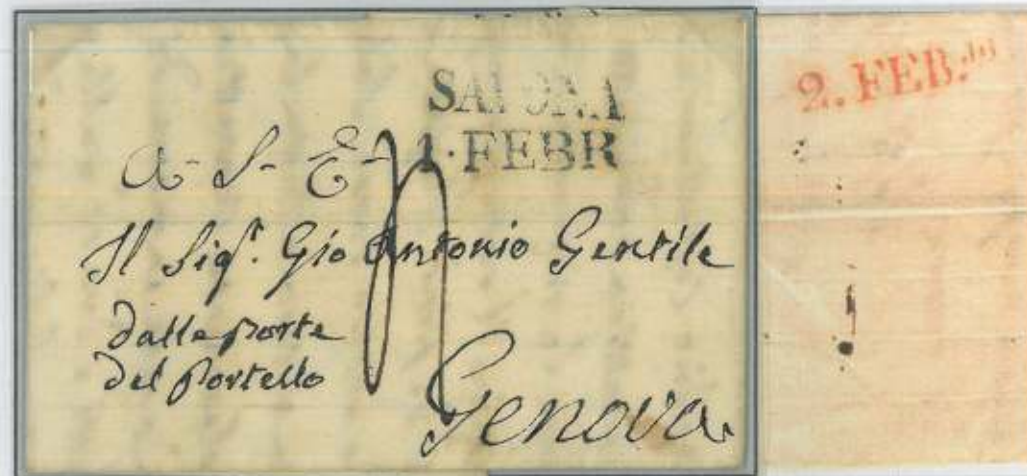 SAVONA
1·FEBR
A- S- E-
Il Sig.r Gio Antonio Gentile
dalle porte
del Portello
Genova
2. FEB.